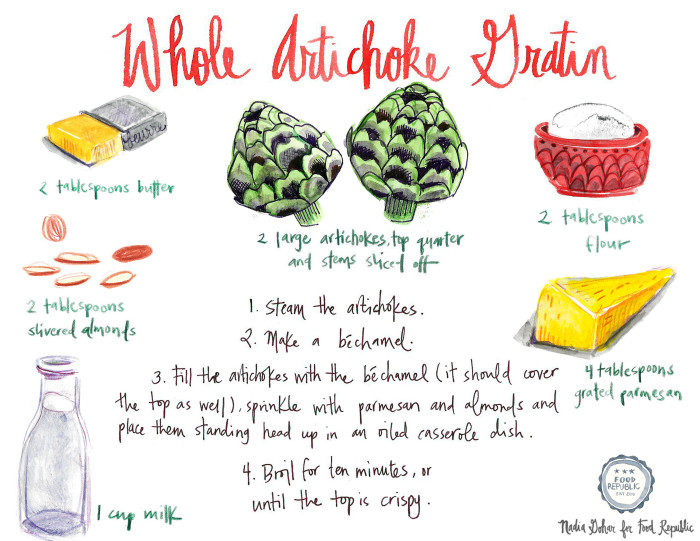 Whole Artichoke Gratin
Beurre
2 tablespoons butter
2 large artichokes, top quarter
and stems sliced off
2 tablespoons
flour
2 tablespoons
slivered almonds
1. Steam the artichokes.
2. Make a béchamel.
3. Fill the artichokes with the béchamel (it should cover
the top as well), sprinkle with parmesan and almonds and
place them standing head up in an oiled casserole dish.
4. Broil for ten minutes, or
until the top is crispy.
4 tablespoons
grated parmesan
1 cup milk
FOOD
REPUBLIC
Nadia Gohar for Food Republic